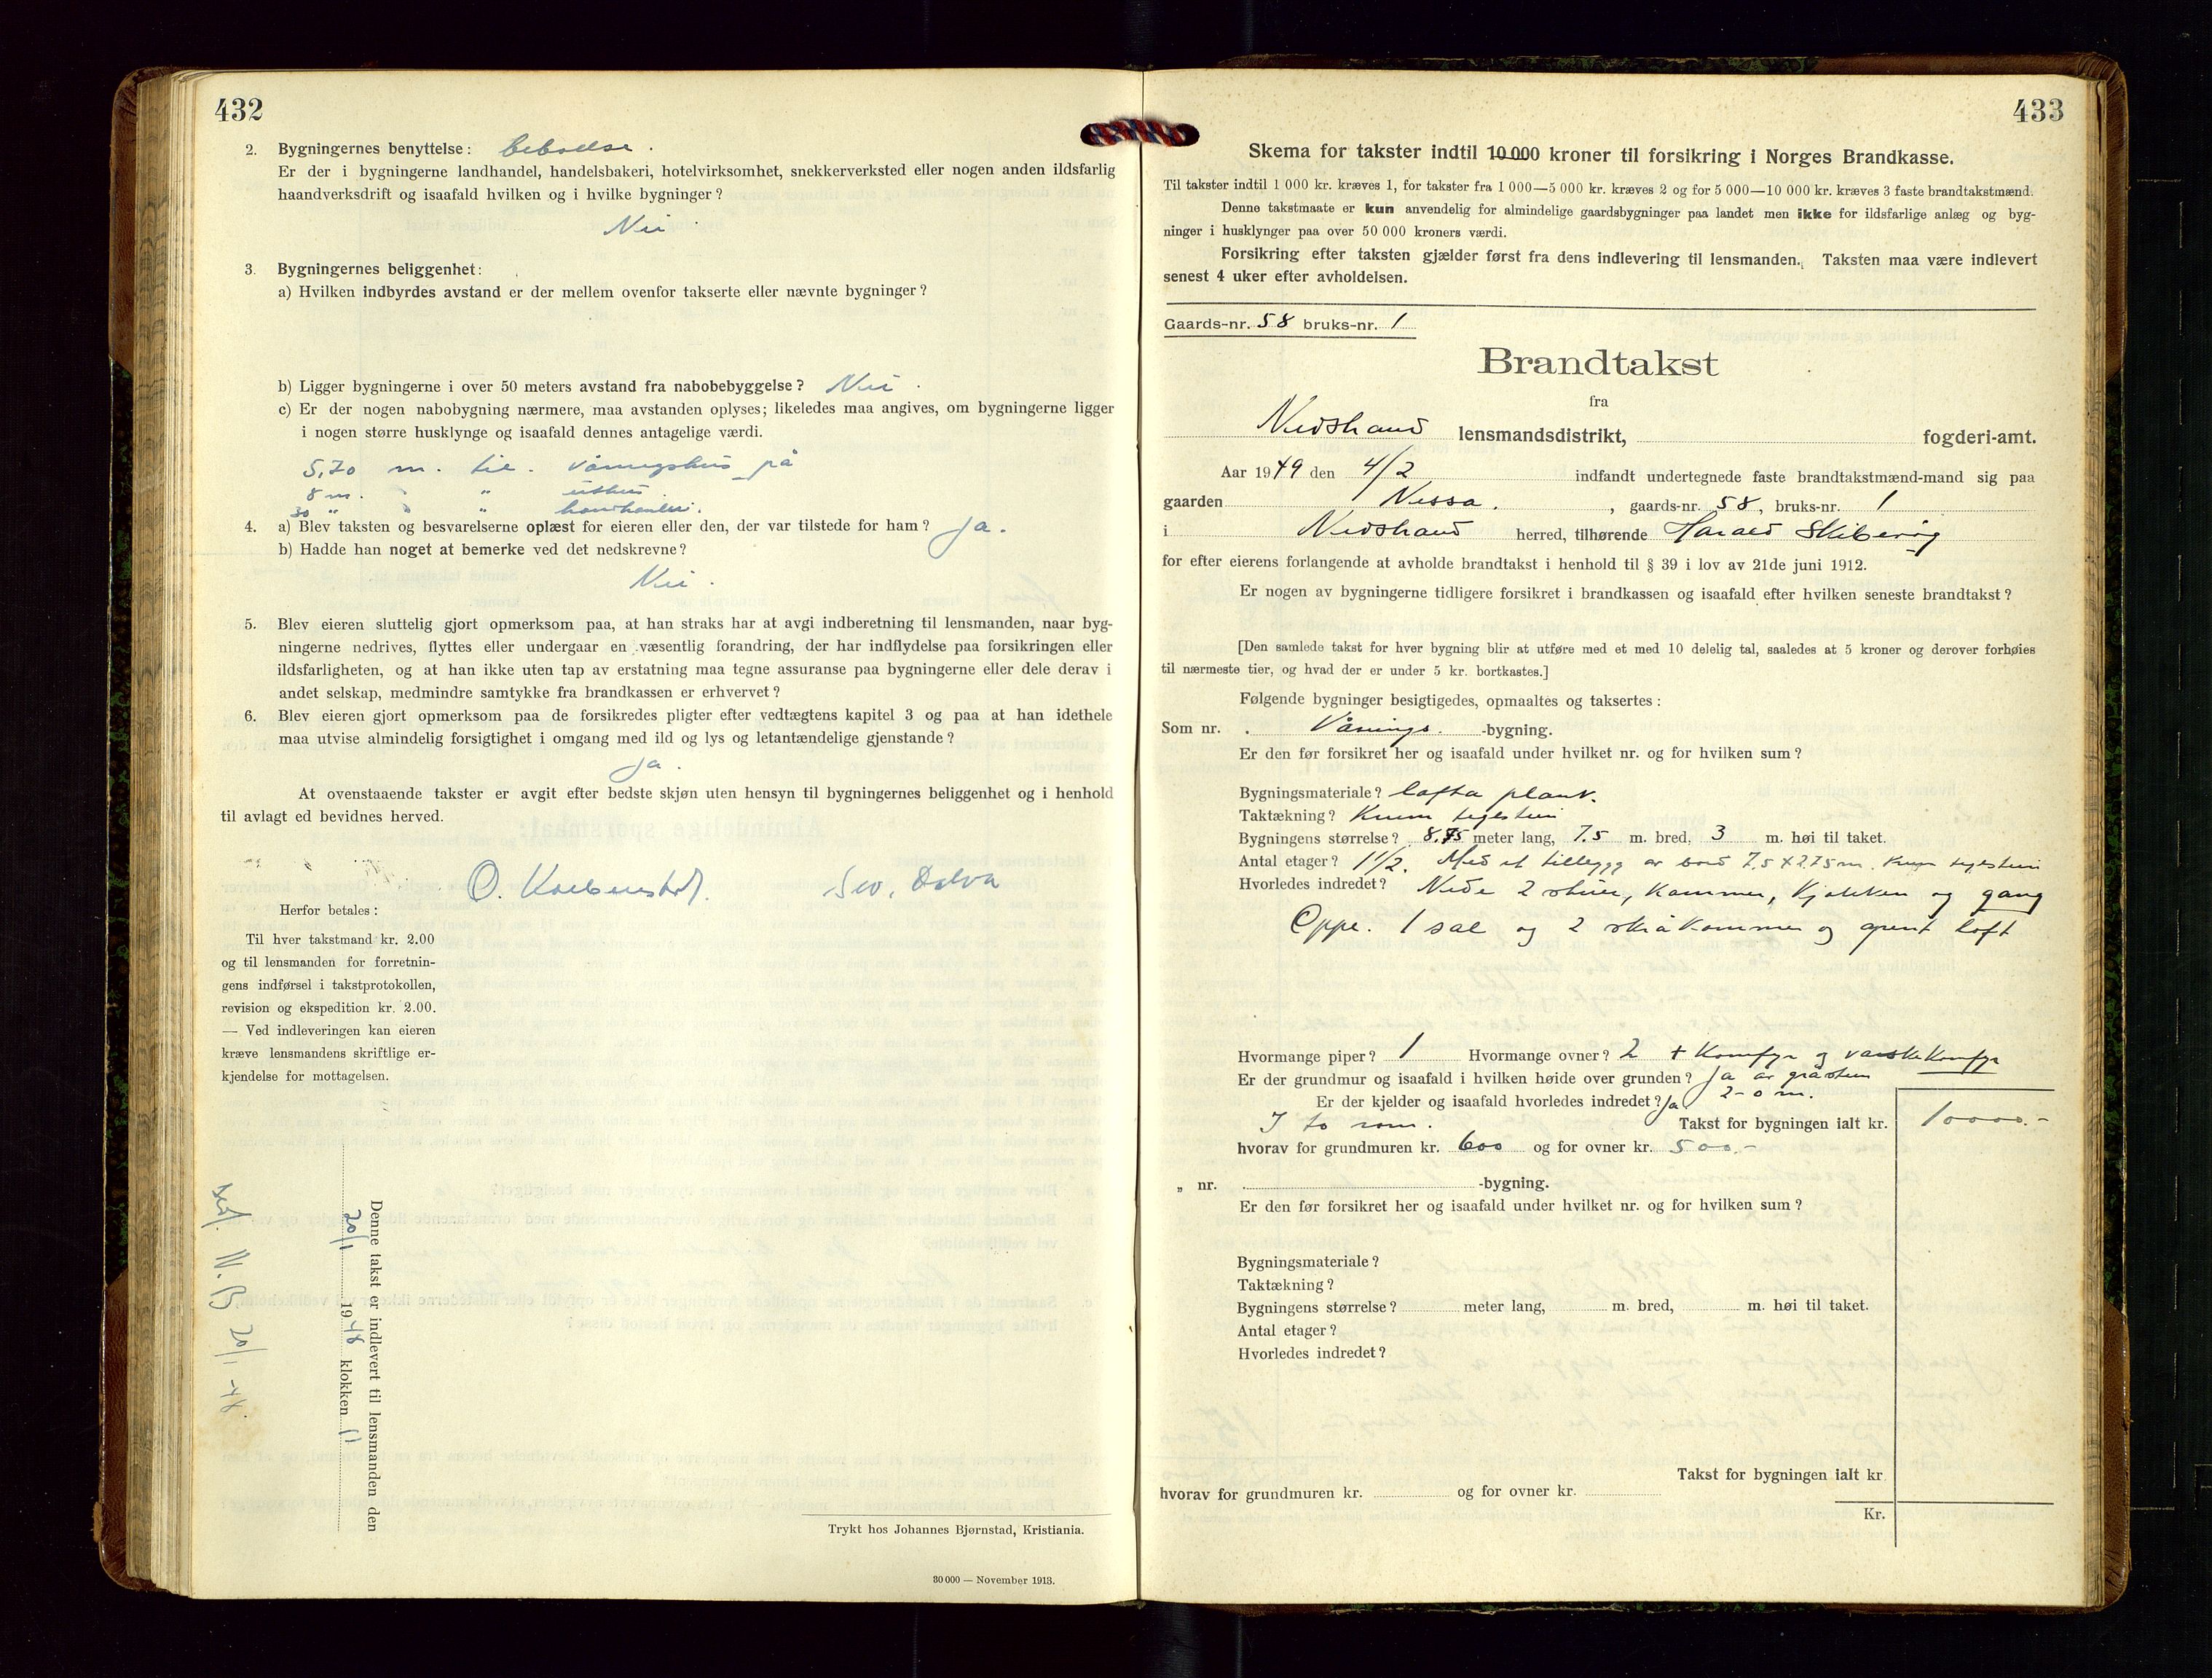 432
2. Bygningernes benyttelse: beboelse.
Er der i bygningerne landhandel, handelsbakeri, hotelvirksomhet, snekkerverksted eller nogen anden ildsfarlig
haandverksdrift og isaafald hvilken og i hvilke bygninger?
Nei
3. Bygningernes beliggenhet:
a) Hvilken indbyrdes avstand er der mellem ovenfor takserte eller nævnte bygninger?
b) Ligger bygningerne i over 50 meters avstand fra nabobebyggelse? Nei.
c) Er der nogen nabobygning nærmere, maa avstanden oplyses; likeledes maa angives, om bygningerne ligger
i nogen større husklynge og isaafald dennes antagelige værdi.
5,70 m. til våningshus på
8 m. " uthus.
30 " "
4. a) Blev taksten og besvarelserne oplæst for eieren eller den, der var tilstede for ham? Ja.
b) Hadde han noget at bemerke ved det nedskrevne?
Nei.
5. Blev eieren sluttelig gjort opmerksom paa, at han straks har at avgi indberetning til lensmanden, naar byg-
ningerne nedrives, flyttes eller undergaar en væsentlig forandring, der har indflydelse paa forsikringen eller
ildsfarligheten, og at han ikke uten tap av erstatning maa tegne assuranse paa bygningerne eller dele derav i
andet selskap, medmindre samtykke fra brandkassen er erhvervet?
6. Blev eieren gjort opmerksom paa de forsikredes pligter efter vedtægtens kapitel 3 og paa at han idethele
maa utvise almindelig forsigtighet i omgang med ild og lys og letantændelige gjenstande?
Ja.
At ovenstaaende takster er avgit efter bedste skjøn uten hensyn til bygningernes beliggenhet og i henhold
til avlagt ed bevidnes herved.
O.
Herfor betales:
Til hver takstmand kr. 2.00
og til lensmanden for forretnin-
gens indførsel i takstprotokollen,
revision og ekspedition kr. 2.00.
— Ved indleveringen kan eieren
kræve lensmandens skriftlige er-
kjendelse for mottagelsen.
Denne takst er indlevert til lensmanden den
20/1 1948 klokken 11
N.B 20/1-48.
Trykt hos Johannes Bjørnstad, Kristiania.
30 000 — November 1913.
433
Skema for takster indtil 10 000 kroner til forsikring i Norges Brandkasse.
Til takster indtil 1 000 kr. kræves 1, for takster fra 1 000—5 000 kr. kræves 2 og for 5 000—10 000 kr. kræves 3 faste brandtakstmænd.
Denne takstmaate er kun anvendelig for almindelige gaardsbygninger paa landet men ikke for ildsfarlige anlæg og byg-
ninger i husklynger paa over 50 000 kroners værdi.
Forsikring efter taksten gjælder først fra dens indlevering til lensmanden. Taksten maa være indlevert
senest 4 uker efter avholdelsen.
Gaards-nr. 58 bruks-nr. 1
Brandtakst
fra
Nedstrand lensmandsdistrikt, fogderi-amt.
Aar 1949 den 4/2 indfandt undertegnede faste brandtakstmænd-mand sig paa
gaarden Nessa., gaards-nr. 58, bruks-nr. 1
i Nedstrand herred, tilhørende Harald Skibevåg
for efter eierens forlangende at avholde brandtakst i henhold til § 39 i lov av 21de juni 1912.
Er nogen av bygningerne tidligere forsikret i brandkassen og isaafald efter hvilken seneste brandtakst?
[Den samlede takst for hver bygning blir at utføre med et med 10 delelig tal, saaledes at 5 kroner og derover forhøies
til nærmeste tier, og hvad der er under 5 kr. bortkastes.]
Følgende bygninger besigtigedes, opmaaltes og taksertes:
Som nr. Vånings-bygning.
Er den før forsikret her og isaafald under hvilket nr. og for hvilken sum?
Bygningsmateriale? lafta plank.
Taktækning? Krum teglstein
Bygningens størrelse? 8.75 meter lang, 7.5 m. bred, 3 m. høi til taket.
Antal etager? 1 1/2. Med et tillegg av bord 7.5 x 2.75 m. Krum teglstein
Hvorledes indredet? Nede 2 stuer, kammer, kjøkken og gang
Oppe. 1 sal og 2 skråkammer og åpent loft
Hvormange piper? 1 Hvormange ovner? 2 + Komfyr og vaskekomfyr
Er der grundmur og isaafald i hvilken høide over grunden? Ja av gråstein
2-0 m.
Er der kjelder og isaafald hvorledes indredet? Ja
I to rom. Takst for bygningen ialt kr. 10000.-
hvorav for grundmuren kr. 600 og for ovner kr. 500.-
„ nr. -bygning.
Er den før forsikret her og isaafald under hvilket nr. og for hvilken sum?
Bygningsmateriale?
Taktækning?
Bygningens størrelse? meter lang, m. bred, m. høi til taket.
Antal etager?
Hvorledes indredet?
Takst for bygningen ialt kr
hvorav for grundmuren kr. og for ovner kr.
Kr.